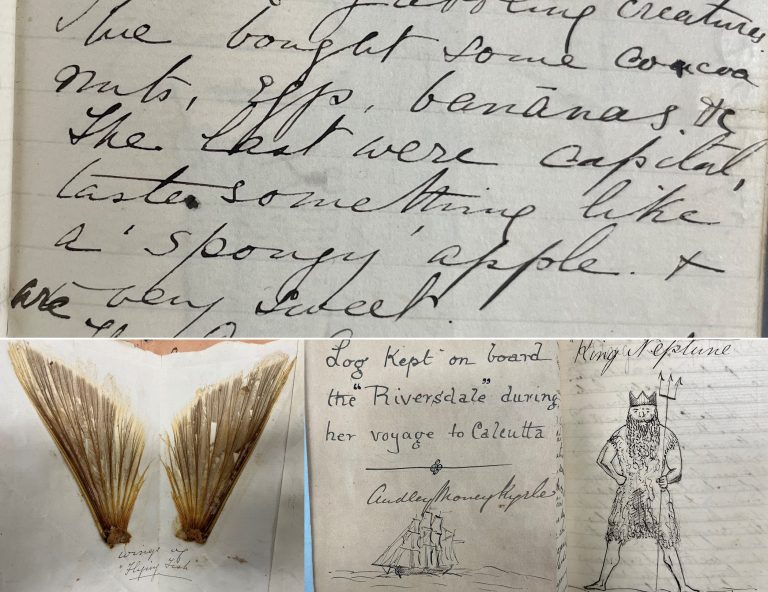 creatures.
We bought some cocoa
nuts, Eggs, bananas &c
The last were capital,
taste something like
a 'spongy' apple. +
are very sweet.
wings of
"Flying Fish"
Log Kept on board
the "Riversdale" during
her voyage to Calcutta
Audley Money Kyrle
"King Neptune"